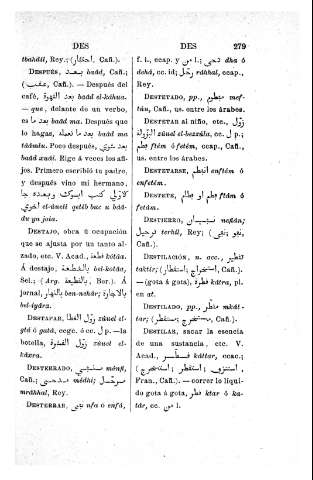 DES DES 279
tbahdil, Rey.; (احتقار, Cañ.).
DESPUÉS, بعد baâd, Cañ.;
(عقب, Cañ.). — Después del
café, بعد القهوة baâd el-káhua.
— que, delante de un verbo,
es بعد ما baâd ma. Después que
lo hagas, بعد ما تعمله baâd ma
tâámlu. Poco después, بعد شوي
baâd xuái. Rige á veces los afi-
jos. Primero escribió tu padre,
y después vino mi hermano,
el-áuuli
du ya joia.
DESTAJO, obra ú ocupación
que se ajusta por un tanto al-
zado, etc. V. Acad., قطعة kótâa.
Á destajo, بالقطعة bel-kotâa,
Sel.; (بالقطيعة, Bor.). Á
jornal,
bel-iyára.
DESTAPAR, زول الغطا zúuel el-
gtá ó gatá, ccgc. ó cc. ل p. — la
botella, زول القشرة zúuel el-
káxra.
DESTERRADO, منفي ménfi,
Cañ.; مدحي médhi; مرحل
mráhhal, Rey.
DESTERRAR, نفى nfa ó enfá,
f. i., ccap. y من l.; دحى dha ó
dahá, cc. id; رحل ráhhal, ccap.,
Rey.
DESTETADO, pp., مفطوم mef-
túm, Cañ., us. entre los árabes.
DESTETAR al niño, etc., زول
البزولة zúuel el-bezzúla, cc. ل p.;
فطم ftém ó fetém, ccap., Cañ.,
us. entre los árabes.
DESTETARSE, انفطم enftém ó
enfetém.
DESTETE, فطم او فطام ftám ó
fetám.
DESTIERRO, نفيان nefián;
ترحيل terhíl, Rey; (نفو; نفي,
Cañ.).
DESTILACIÓN, n. acc., تقطير
taktír; (استخراج; استقطار, Cañ.).
— (gota á gota), قطرة kátra, pl.
en at.
DESTILADO, pp., مقطر mkát-
tar; (مستخرج; مستقطر, Cañ.).
DESTILAR, sacar la esencia
de una sustancia, etc. V.
Acad., قطر káttar, ccac.;
(استخرج; استقطر; استنزف,
Fran., Cañ.). — correr lo líqui-
do gota á gota, قطر ktar ó ka-
tár, cc. من l.